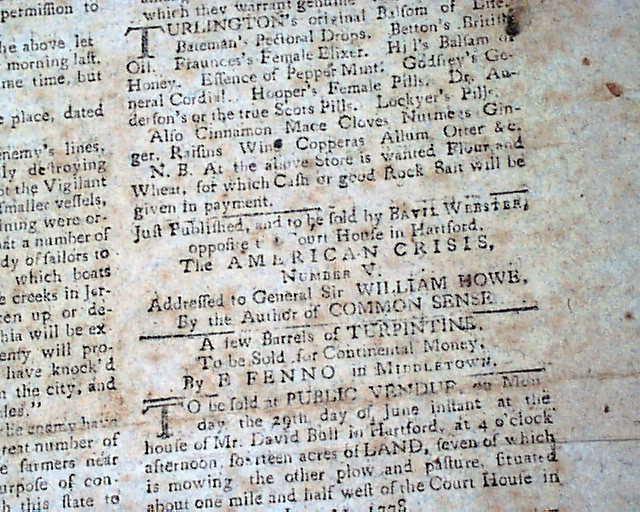 permission to
he above let
morning last.
me time, but
e place, dated
enemy's lines,
ly destroying
ot the Vigilant
smaller vessels,
ining were or-
at a number of
dy of sailors to
which boats
e creeks in Jer-
en up or de-
hia will be ex-
enty will pro-
have knock'd
n the city, and
les."
he enemy have
reat number of
e farmers near
urpose of con-
h this state to
which they warrant genuine
TURLINGTON's original Balsom of Life.
Bateman's Pectoral Drops. Betton's British
Oil. Fraunces's Female Elixer. Hill's Balsam of
Honey. Essence of Pepper Mint. Godfrey's Ge-
neral Cordial. Hooper's Female Pills. Dr. An-
derson's or the true Scots Pills. Lockyer's Pills.
Also Cinnamon Mace Cloves Nutmegs Gin-
ger, Raisins Wine Copperas Allum Otter &c,
N. B. At the above Store is wanted Flour and
Wheat, for which Cash or good Rock Salt will be
given in payment.
Just Published, and to be sold by BAVIL WEBSTER,
opposite the Court House in Hartford,
The AMERICAN CRISIS,
NUMBER V.
Addressed to General Sir WILLIAM HOWE,
By the Author of COMMON SENSE
A few Barrels of TURPINTINE,
To be Sold for Continental Money,
By E FENNO in MIDDLETOWN.
TO be sold at PUBLIC VENDUE, on Mon-
day the 29th day of June instant at the
house of Mr. David Bull in Hartford, at 4 o'clock
afternoon, fourteen acres of LAND, seven of which
is mowing the other plow and pasture, situated
about one mile and half west of the Court House in
1778